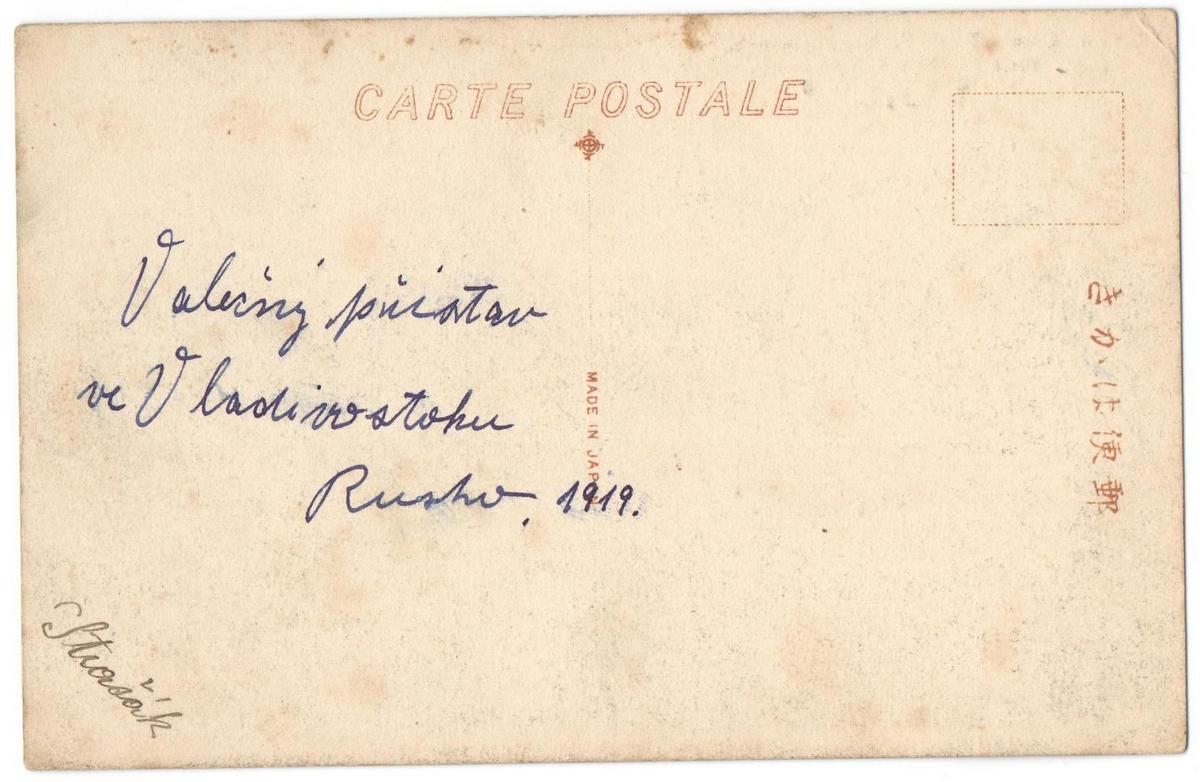 CARTE POSTALE
Válečný přístav
ve Vladivostoku
Rusko, 1919.
MADE IN JAPAN
きかは便郵
Strašák